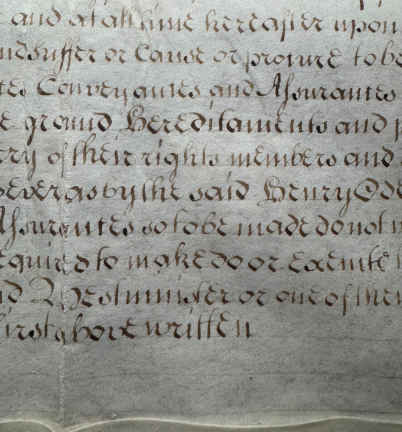 and at all time hereafter upon
suffer or Cause or procure to be
Conveyances and Assurances
ground Hereditaments and
of their rights members and
as by the said Henry
Assurances so to be made do not
to make do or execute
Westminster or one of them
first above written